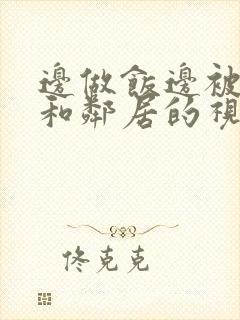 邊做飯邊被
和鄰居的視
佟克克